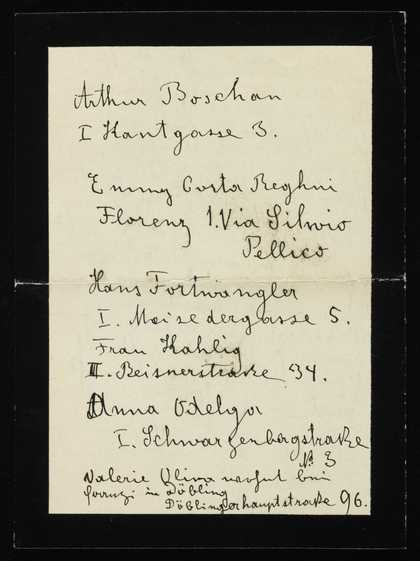 Arthur Boschan
I Kantgasse 3.
Emmy Costa Reghni
Florenz 1. Via Silvio
Pellico
Hans Fortwangler
I. Maisedergasse 5.
Frau Kahlig
III. Reisnerstraße 34.
Anna Odelga
I. Schwarzenbergstraße
No 3
Valerie wohnt bei
in Döbling
Döblingerhauptstraße 96.